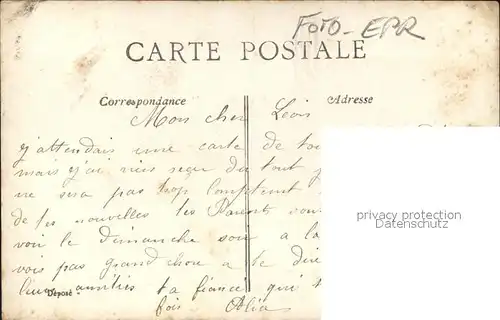 Foto - EPR
CARTE POSTALE
Correspondance Adresse
Mon cher Léon
j'attendais une carte de toi
mais j'ai rien reçu du tout
ne sera pas trop content
de tes nouvelles tes Parents
voir le Dimanche soir a la
vois pas grand chose a te dire
privacy protection
Datenschutz
Déposé amitiés ta fiancé qui t
fois